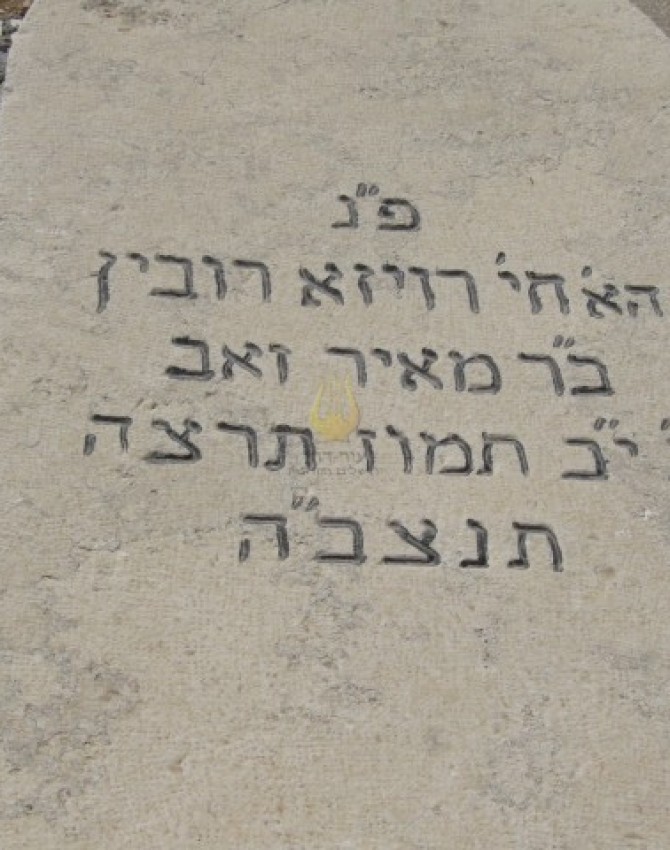 פ"נ
הא' חי' רויזא רובין
ב"ר מאיר זאב
י"ב תמוז תרצה
תנצב"ה